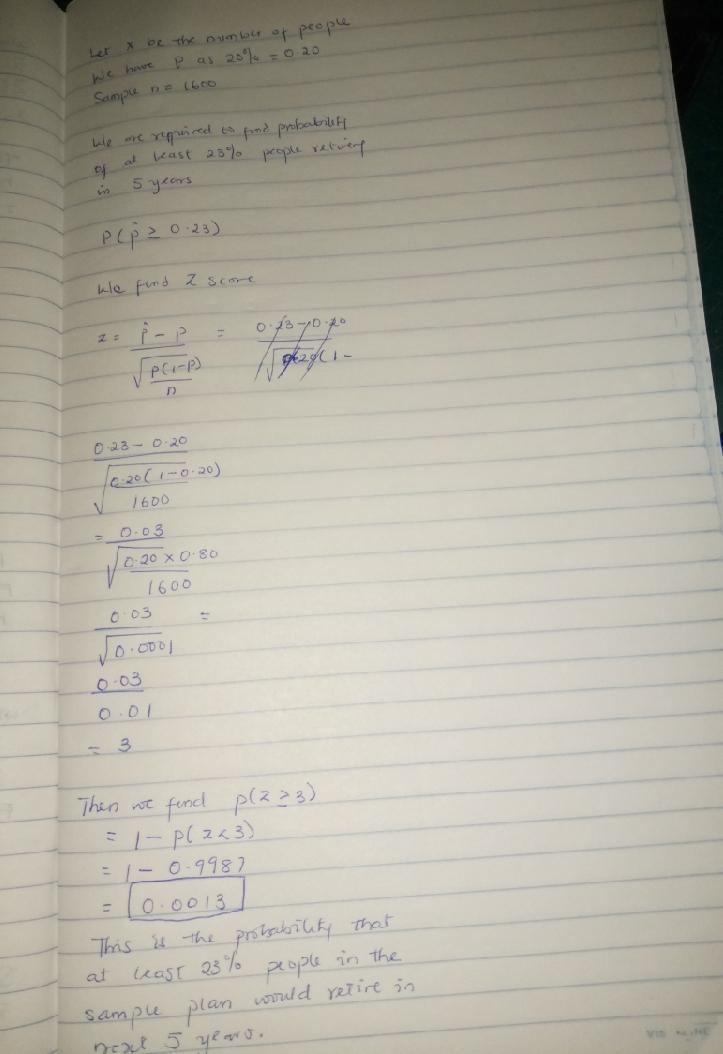 Let x be the number of people
We have P as 20% = 0.20
Sample n = 1600
We are required to find probability
of at least 23% people retiring
in 5 years
P(p̂ ≥ 0.23)
We find Z score
z = p̂ - p / √(p(1-p)/n) =
0.23 - 0.20
√(0.20(1-0.20)/1600)
= 0.03
√(0.20 × 0.80/1600)
0.03 =
√0.0001
0.03
0.01
= 3
Then we find p(z ≥ 3)
= 1 - p(z < 3)
= 1 - 0.9987
= 0.0013
This is the probability that
at least 23% people in the
sample plan would retire in
next 5 years.